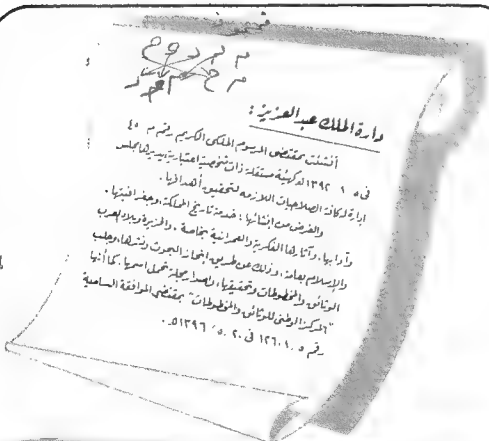 دارة الملك عبد العزيز :
أنشئت بمقتضى المرسوم الملكى الكريم رقم م ٤٥
فى ٥ . ٩ . ١٣٩٢ كهيئة مستقلة ذات شخصية اعتبارية يديرها مجلس
إدارة له كافة الصلاحيات اللازمة لتحقيق أهدافها .
والغرض من إنشائها : خدمة تاريخ المملكة، وجغرافيتها،
وآدابها، وآثارها الفكرية والعمرانية بخاصة ، والجزيرة وبلاد العرب
والإسلام بعامة، وذلك عن طريق إنجاز البحوث ونشرها، وجلب
الوثائق والمخطوطات وتحقيقها، وإصدار مجلة تحمل اسمها . كما أنها
"المركز الوطنى للوثائق والمخطوطات" بمقتضى الموافقة السامية
رقم ٥ . ١٢٦٠١ فى ٢٠ . ٥ . ١٣٩٦هـ .